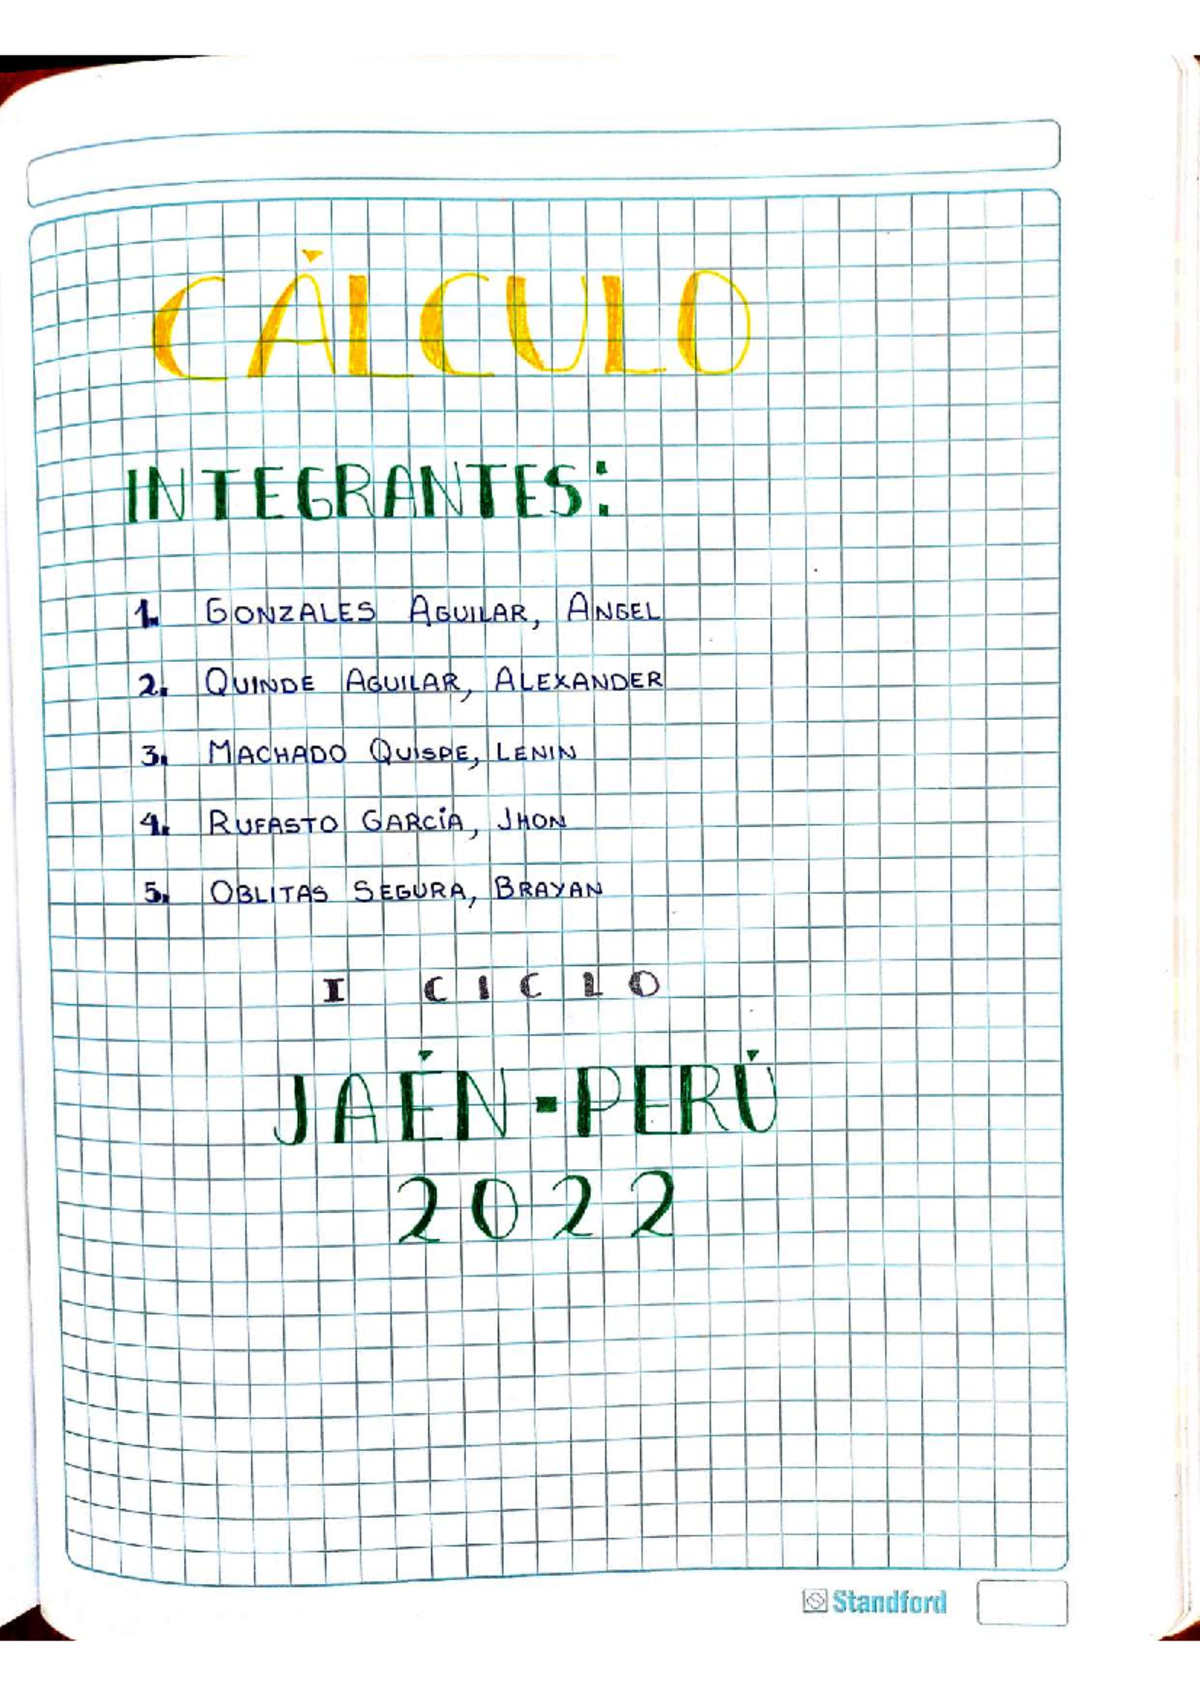 CÁLCULO
INTEGRANTES:
1. GONZALES AGUILAR, ANGEL
2. QUINDE AGUILAR, ALEXANDER
3. MACHADO QUISPE, LENIN
4. RUFASTO GARCÍA, JHON
5. OBLITAS SEGURA, BRAYAN
I CICLO
JAÉN-PERÚ
2022
Standford